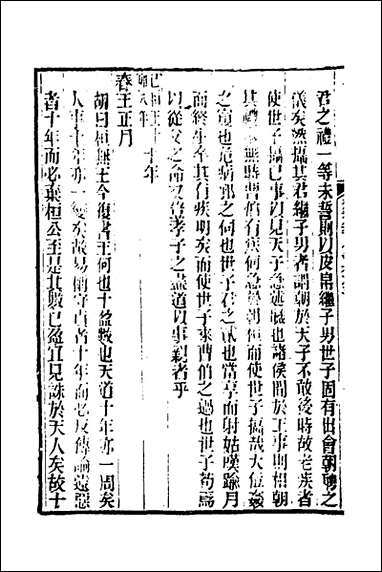 君之禮一等未誓則以皮帛繼子男世子固有出會朝聘之
儀矣然攝其君繼子男者謂朝於天子不敢後時故老疾者
使世子攝已事以見天子急述職也諸侯閒於王事則相朝
其禮本無時曹伯有疾何急於朝桓而使世子攝哉大位姦
之窺也危病邪之伺也世子君之貳也當享而射姑嘆踰月
而終生卒其有疾明矣而使世子來曹伯之過也世子苟焉
以從父之命又豈孝子之盡道以事親者乎
己卯桓王十年
春王正月
胡曰桓無王今復書王何也十盈數也天道十年亦一周矣
人事十年亦一變矣故易稱守貞者十年而必反傳論遠惡
者十年而必棄桓公至是其數已盈宜見誅於天人矣故十